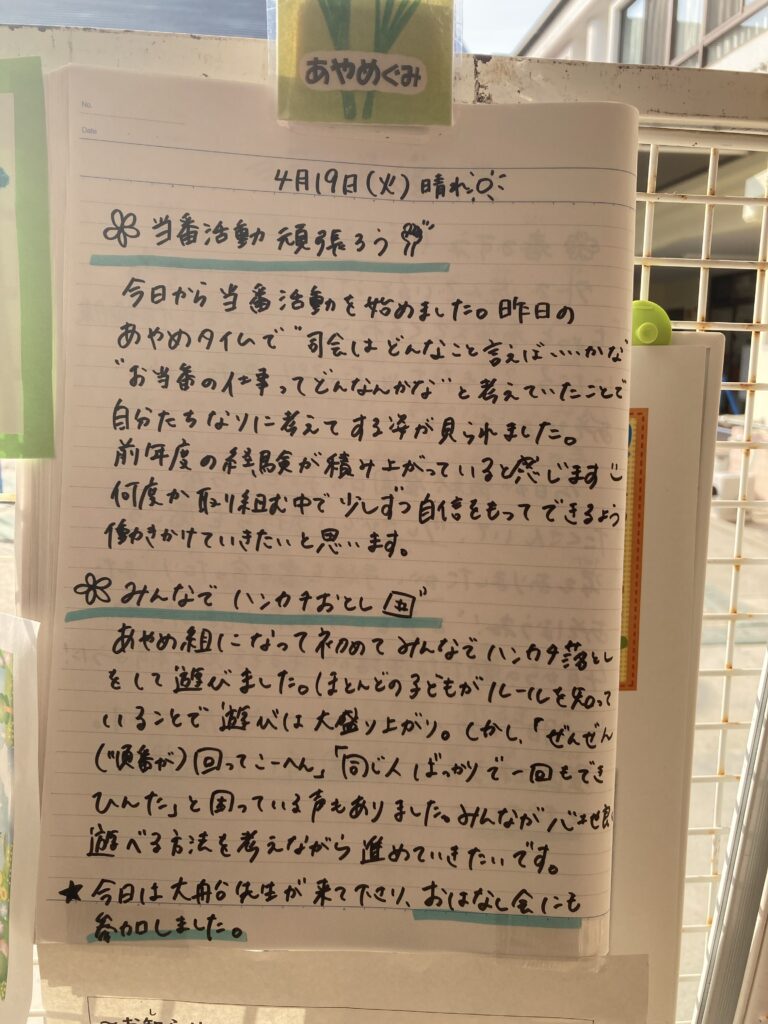 あやめぐみ
No.
Date
4月19日(火) 晴れ
当番活動 頑張ろう
今日から当番活動を始めました。昨日の
あやめタイムで"司会はどんなこと言えばいいかな"
"お当番の仕事ってどんなんかな"と考えていたことで
自分たちなりに考えてする姿が見られました。
前年度の経験が積み上がっていると感じます
何度か取り組む中で少しずつ自信をもってできるよう
働きかけていきたいと思います。
みんなで ハンカチおとし
あやめ組になって初めてみんなでハンカチ落とし
をして遊びました。ほとんどの子どもがルールを知って
いることで遊びは大盛り上がり。しかし、「ぜんぜん
(順番が)回ってこーへん」「同じ人ばっかりで一回もでき
ひんた」と困っている声もありました。みんなが心地良く
遊べる方法を考えながら進めていきたいです。
★今日は大船先生が来て下さり、おはなし会にも
参加しました。
〜お知らせ